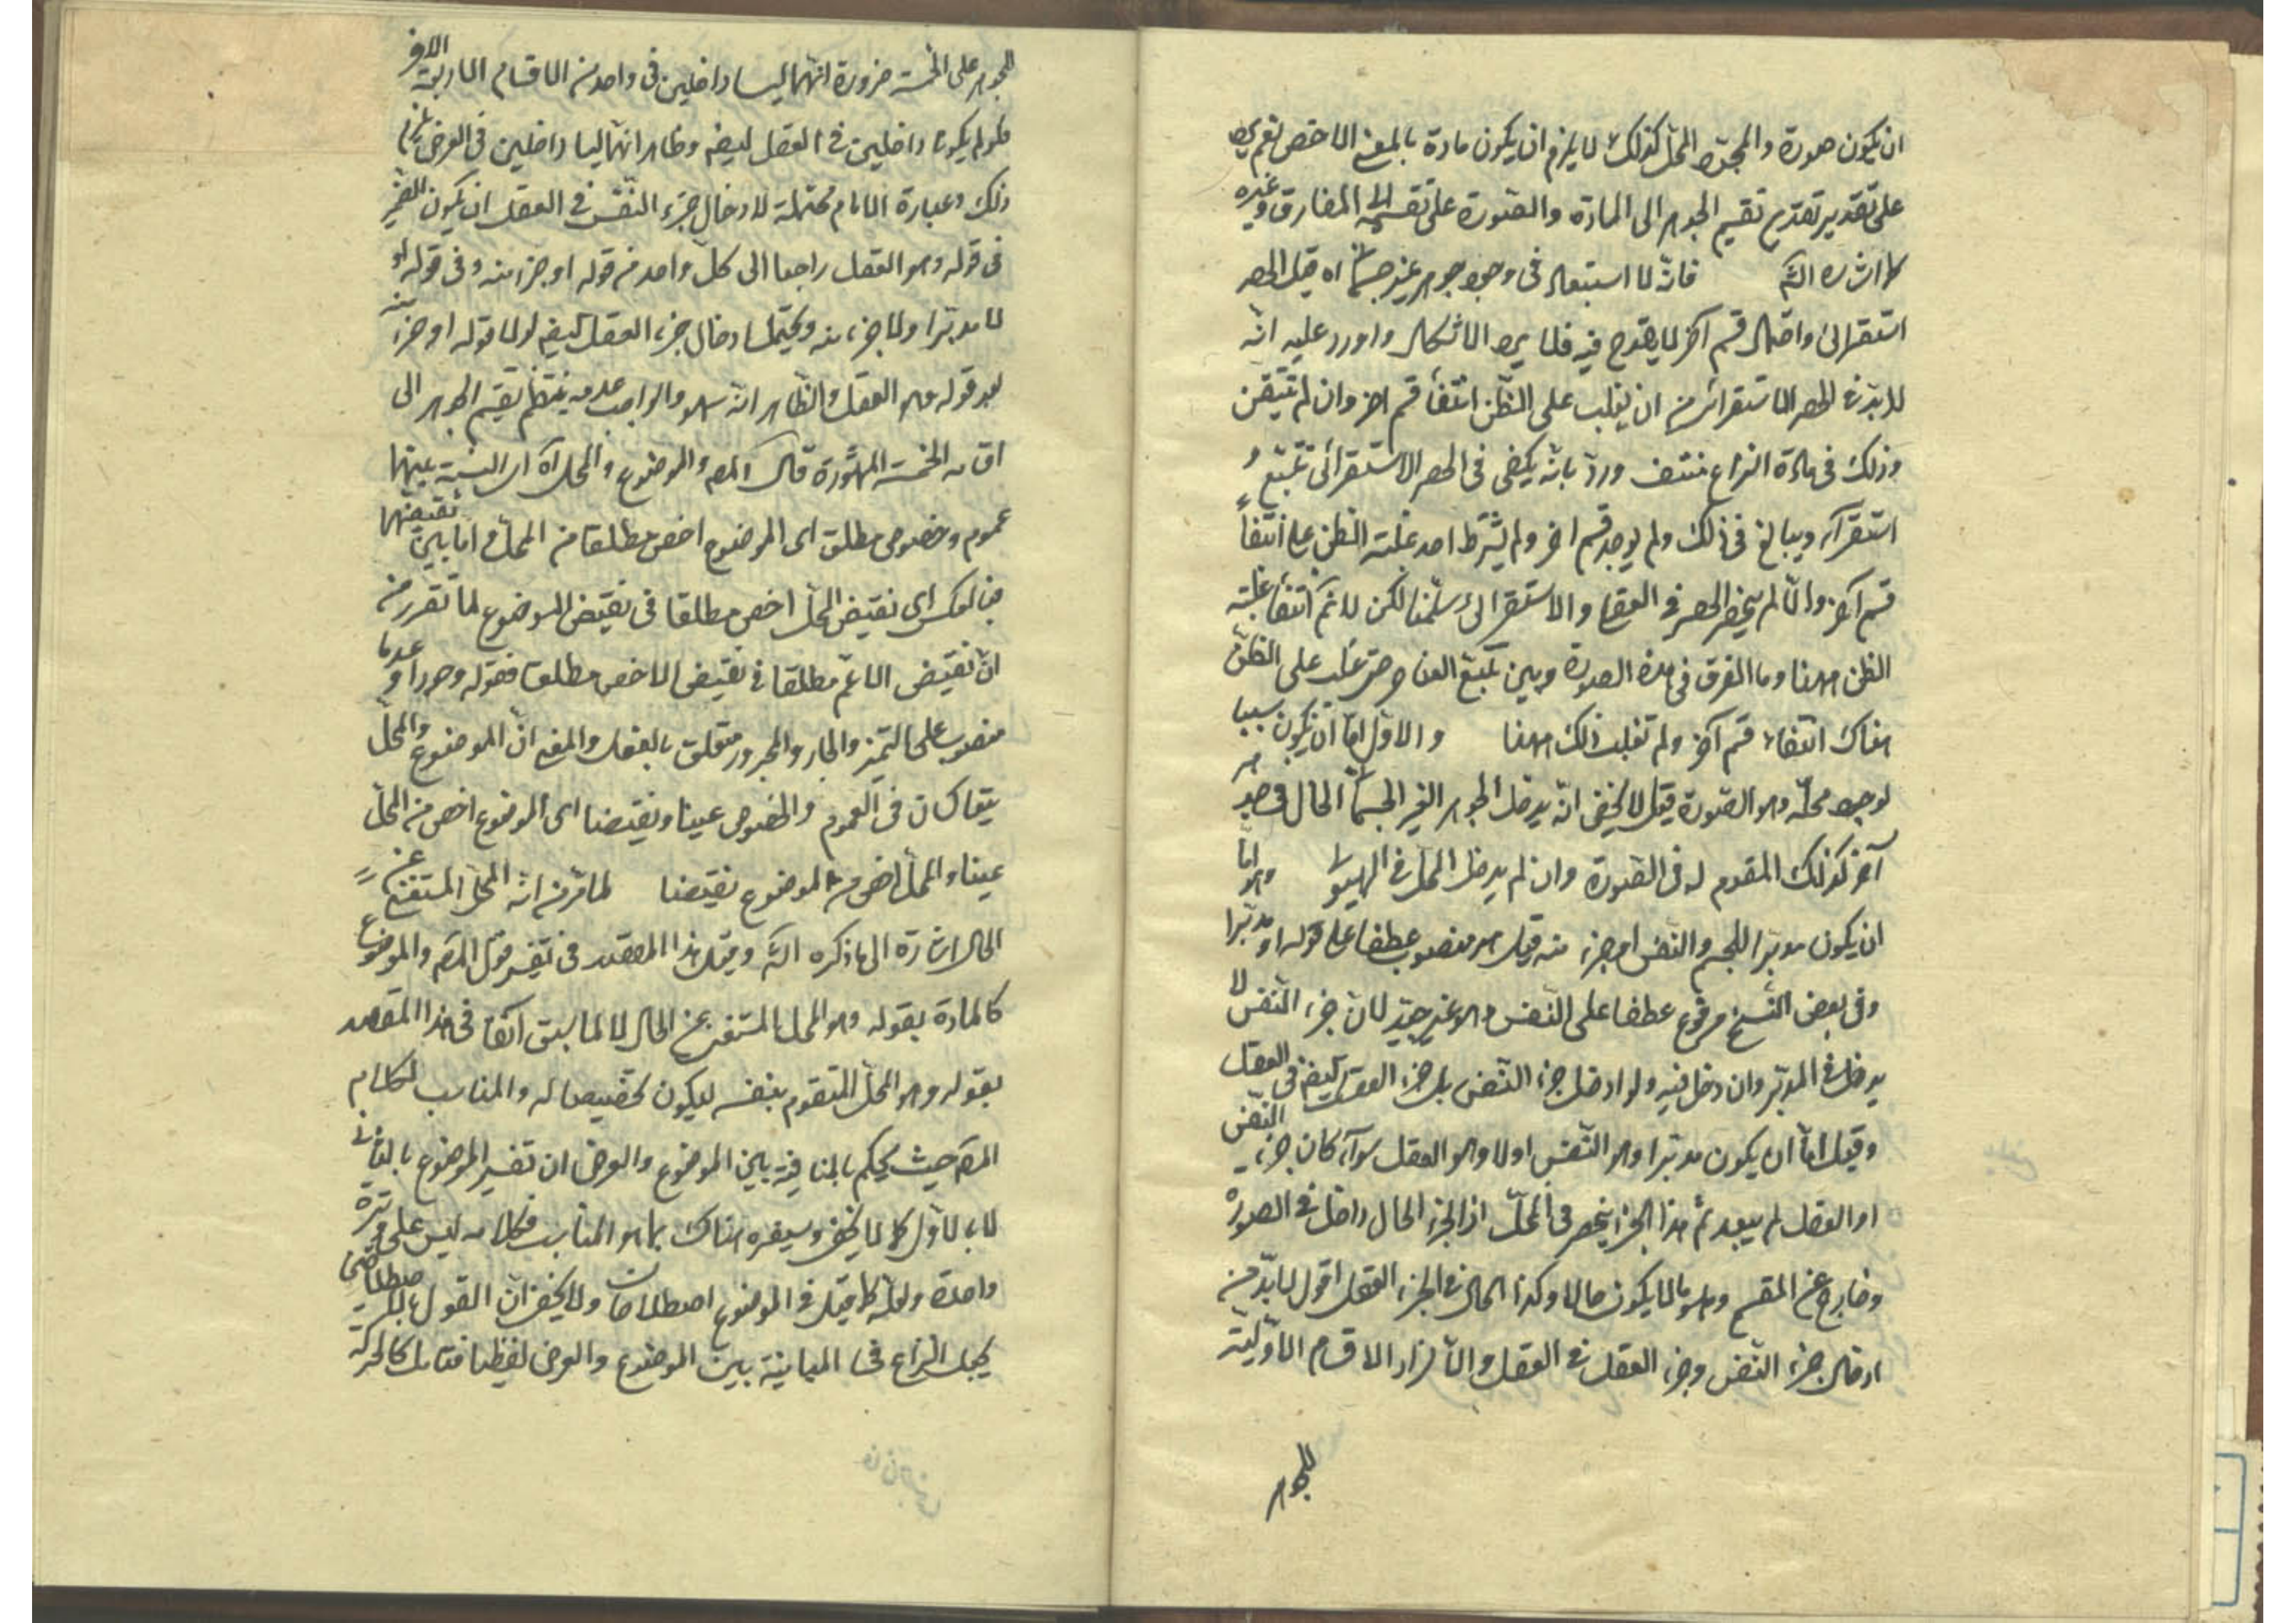 ان يكون صورة والمجرد المحل كذلك لا يلزم ان يكون مادة بالمعنى الاخص نعم يرد
على تقدير تقديم تقسيم الجوهر الى المادة والصورة على تقسيمه الى المفارق وغيره
كما اشار اليه فانه لا استبعاد في وجود جوهر غير جسماني اه قيل الحصر
استقرائي واحتمال قسم آخر لا يقدح فيه فلا يرد الاشكال واورد عليه انه
لا بد في الحصر الاستقرائي من ان يغلب على الظن انتفاء قسم اخر وان لم يتيقن
وذلك في مادة النزاع منتف ورد بانه يكفي في الحصر الاستقرائي تتبع و
استقرآء ويبالغ في ذلك ولم يوجد قسم اخر ولم يشترط احد غلبته الظن على انتفاء
قسم آخر والا لم ينحصر الحصر في العقلي والاستقرائي سلمنا لكن لا نم انتفاء غلبته
الظن ههنا وما الفرق في هذه الصورة وبين تتبع حتى غلب على الظن
هناك انتفاء قسم آخر ولم تغلب ذلك ههنا والاول اما ان يكون سببا
لوجود محله وهو الصورة قيل لا يخفى انه يدخل الجوهر الغير الجسماني الحال في جوهر
آخر كذلك المقوم له في الصورة وان لم يدخل المحل في الهيولى وهو اما
ان يكون مدبرا للجسم والنفس او جزء منه قيل هو منصوب عطفا على قوله او مدبرا
وفي بعض النسخ مرفوع عطفا على النفس وهو غير جيد لان جزء النفس لا
يدخل في المدبر وان دخل فيه ولو ادخل جزء النفس بل جزء العقل ايضا في العقل
وقيل اما ان يكون مدبرا وهو النفس او لا وهو العقل سوآء كان جزء النفس
او العقل لم يبعد ثم هذا الجزء ينحصر في المحل اذ الجزء الحال داخل في الصورة
وخارج عن المقسم وهو ما لا يكون حالا وكذا الحال في الجزء العقل اقول لا بد من
ادخال جزء النفس وجزء العقل في العقل والا لزاد الاقسام الاولية
للجوهر
للجوهر على الخمسة ضرورة انهما ليسا داخلين في واحد من الاقسام الاربعة الاخر
فلو لم يكونا داخلين في العقل ايضا وظاهر انهما ليسا داخلين في العرض لزم
ذلك وعبارة الامام محتملة لادخال جزء النفس في العقل ان يكون الضمير
في قوله وهو العقل راجعا الى كل واحد من قوله او جزء منه وفي قوله او
لا مدبرا ولا جزء منه ويحتمل ادخال جزء العقل ايضا لولا قوله او جزء منه
بعد قوله وهو العقل والظاهر انه سهو والواجب عدمه ينتظم تقسيم الجوهر الى
اقسامه الخمسة المشهورة قال المص والموضوع والمحل اه اى النسبة بينهما
عموم وخصوص مطلق اى الموضوع اخص مطلقا من المحل واما بين نقيضيهما
فبالعكس اى نقيض المحل اخص مطلقا من نقيض الموضوع لما تقرر من
ان نقيض الاعم مطلقا من نقيض الاخص مطلقا فقوله وجودا وعدما
منصوب على التميز والجار والمجرور متعلق بالفعل والمعنى ان الموضوع والمحل
يتعاكسان في العموم والخصوص عينا ونقيضا اى الموضوع اخص من المحل
عينا والمحل اخص من الموضوع نقيضا لما مر من انه المحل المستغنى عن
الحال اشارة الى ما ذكره اليه وقيل هذا المقصد في تفسير قول المص والموضوع
كالمادة بقوله وهو المحل المستغنى عن الحال لا لما سبق آنفا في هذا المقصد
بقوله وهو المحل المتقوم بنفسه ليكون تخصيصا له والمناسب لكلام
المص حيث يحكم بالمنافية بين الموضوع والعرض ان تفسير الموضوع بالثاني
لا بالاول كما لا يخفى وسيفسره هناك بما هو المناسب فكلامه ليس على وتيرة
واحدة ولعله كما قيل في الموضوع اصطلاحان ولا يخفى ان القول بالاصطلاحين
يجعل النزاع في المباينة بين الموضوع والعرض لفظيا فتامل كالحركة